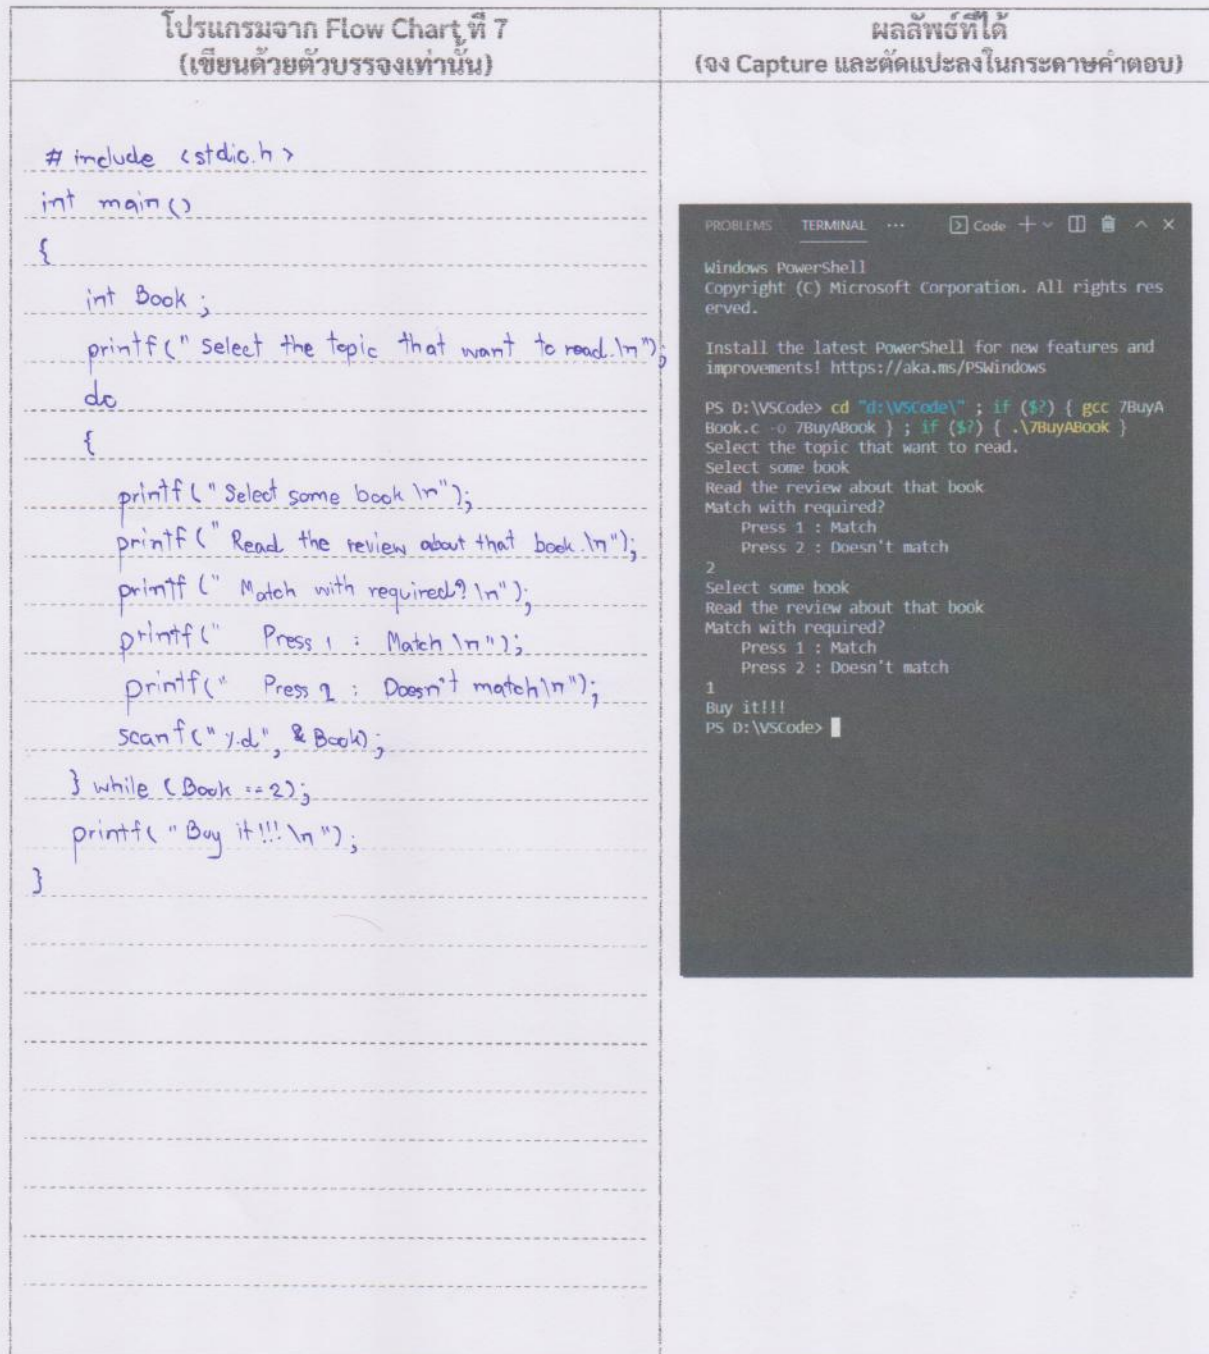 โปรแกรมจาก Flow Chart ที่ 7
(เขียนด้วยตัวบรรจงเท่านั้น)
# include <stdio.h>
int main()
{
int Book ;
printf(" Select the topic that want to read.\n");
do
{
printf("Select some book \n");
printf(" Read the review about that book.\n");
printf (" Match with required? \n");
printf(" Press 1 : Match \n");
printf(" Press 2 : Doesn't match\n");
scanf("%d", & Book);
} while (Book == 2);
printf( "Buy it!!! \n ");
}
ผลลัพธ์ที่ได้
(จง Capture และตัดแปะลงในกระดาษคำตอบ)
PROBLEMS TERMINAL ... Code
Windows PowerShell
Copyright (C) Microsoft Corporation. All rights res
erved.
Install the latest PowerShell for new features and
improvements! https://aka.ms/PSWindows
PS D:\VSCode> cd "d:\VSCode\" ; if ($?) { gcc 7BuyA
Book.c -o 7BuyABook } ; if ($?) { .\7BuyABook }
Select the topic that want to read.
Select some book
Read the review about that book
Match with required?
Press 1 : Match
Press 2 : Doesn't match
2
Select some book
Read the review about that book
Match with required?
Press 1 : Match
Press 2 : Doesn't match
1
Buy it!!!
PS D:\VSCode>